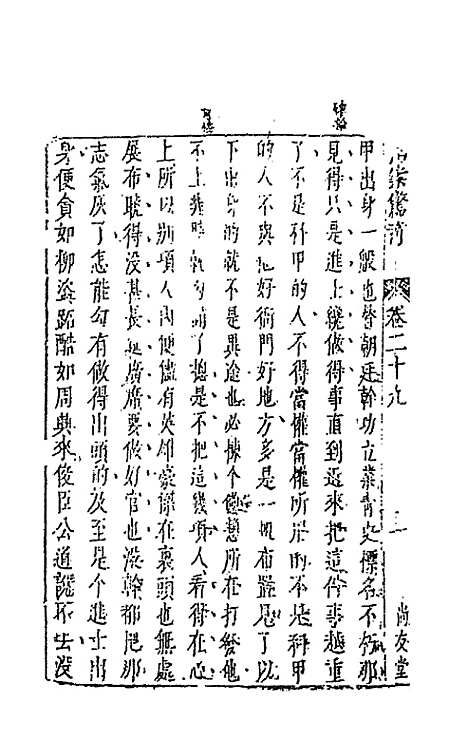 拍案驚奇 卷二十九 二 尚友堂
甲出身一般也替朝廷幹功立業青史標名不朽那
見得只是進士纔做得事直到近來把這件事越重
了不是科甲的人不得當權當權所用的不是科甲
的人不與他好衙門好地方多是一帆布置見了以
下出身的就不是異途也必揀个憊懶所在打發他
不上幾時就勾銷了總是不把這幾項人看得在心
上所以別項人內便儘有英雄豪傑在裏頭也無處
展布曉得沒甚長筵廣要做好官也沒幹都把那
志氣灰了怎能勾有做得出頭的及至是个進士出
身便貪如柳盜跖酷如周興來俊臣公道說不去沒